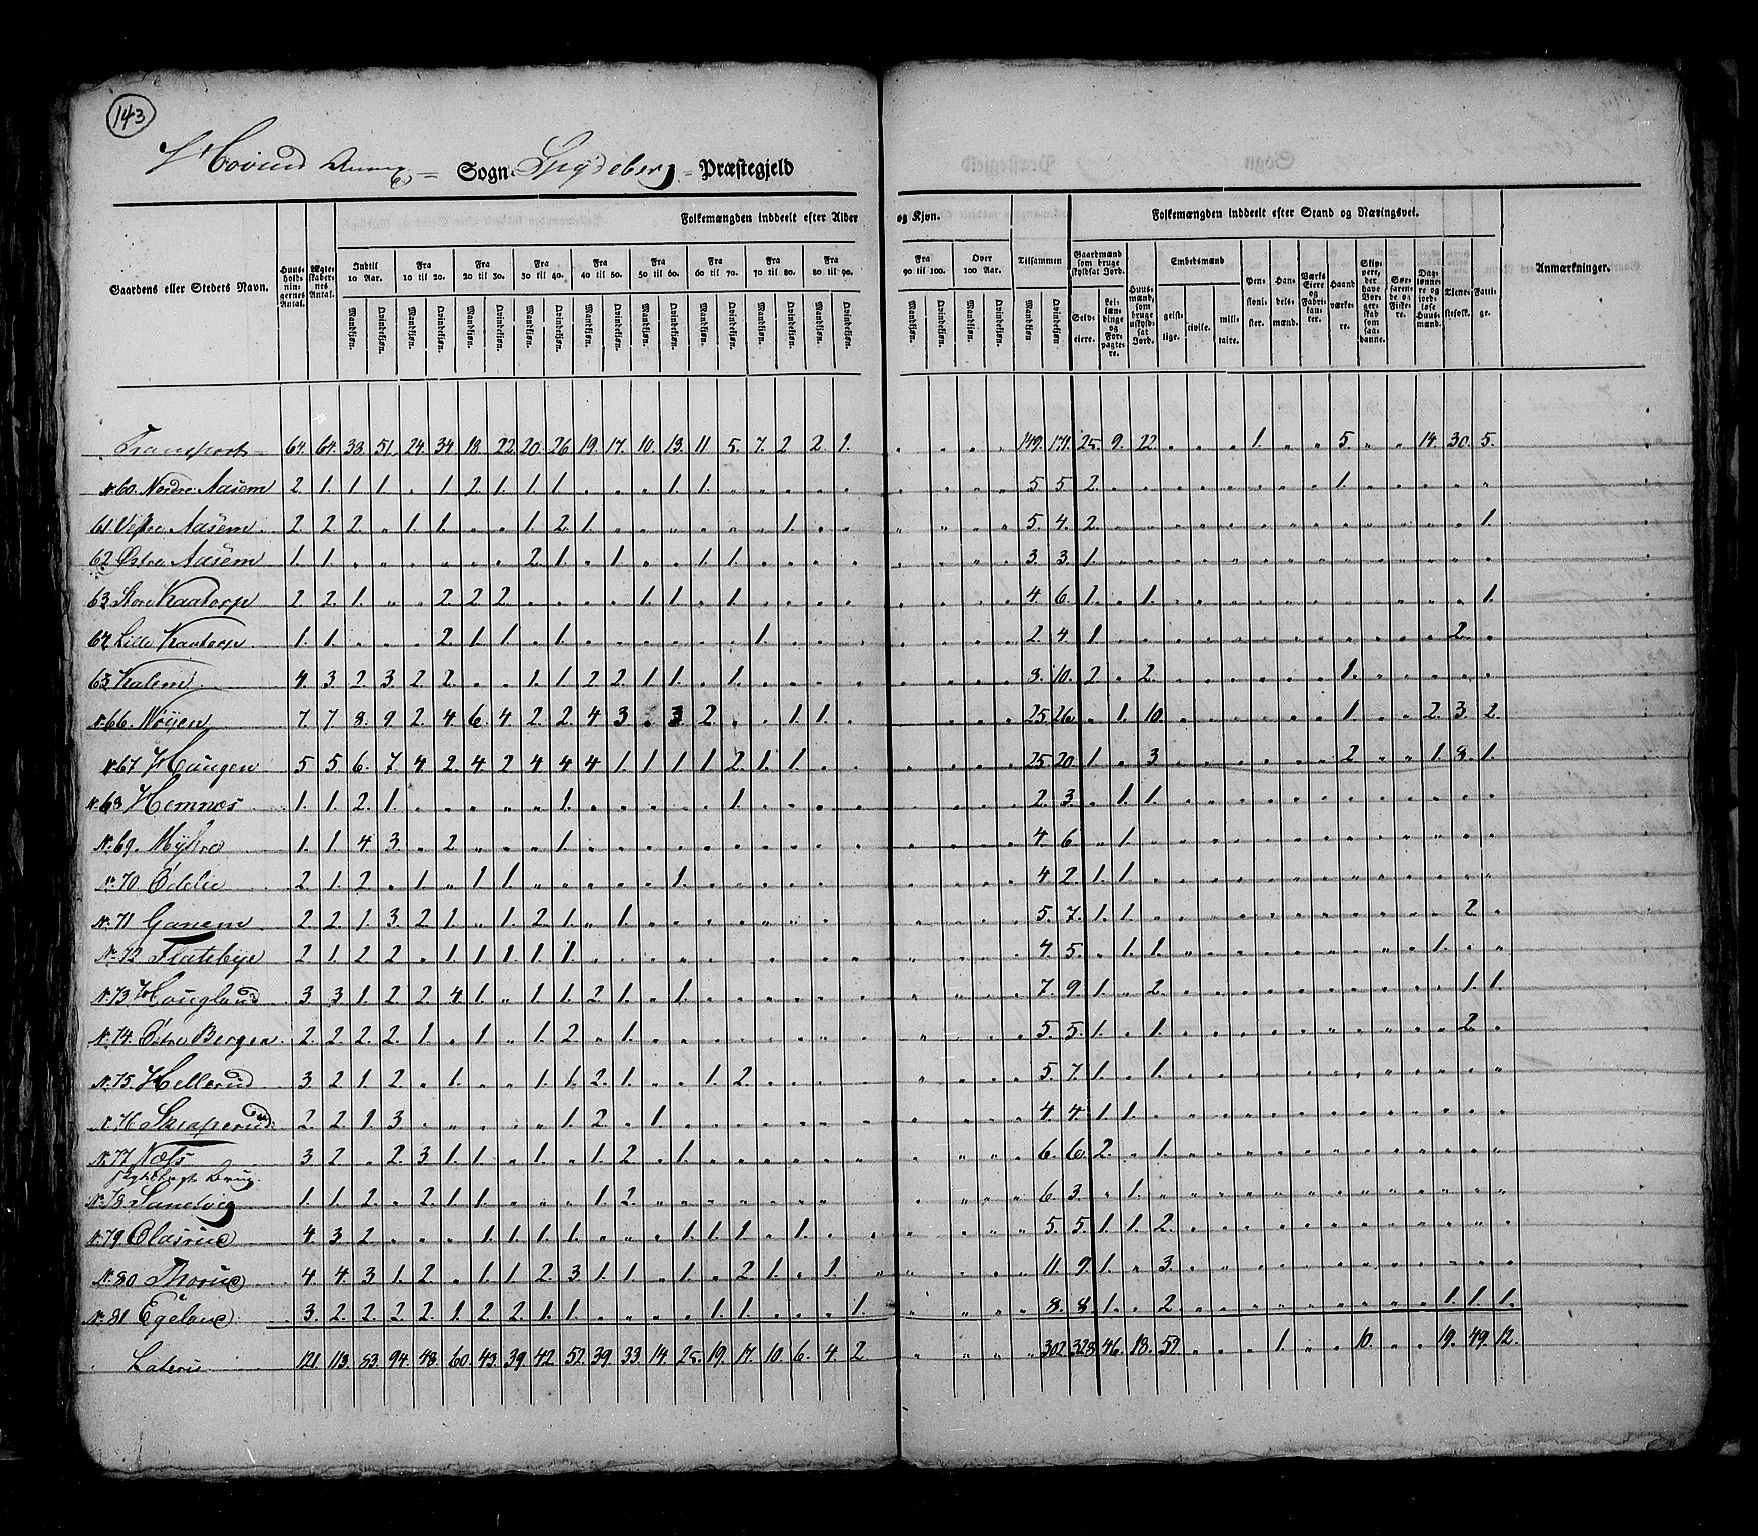 143
Hovind Annex = Sogn Spydeberg = Præstegjeld
Gaardens eller Stedets Navn.
Huusholdningernes Antal.
Ægteskabernes Antal.
Folkemængden inddeelt efter Alder og Kjøn.
Indtil 10 Aar. Fra 10 til 20. Fra 20 til 30. Fra 30 til 40. Fra 40 til 50. Fra 50 til 60. Fra 60 til 70. Fra 70 til 80. Fra 80 til 90. Fra 90 til 100. Over 100 Aar. Tilsammen
Mandkjøn. Qvindekjøn.
Folkemængden inddeelt efter Stand og Næringsvei.
Gaardmænd som bruge skyldsat Jord. Selveiere. Leilændinge og Forpagtere.
Huusmænd, som bruge uskyldsat Jord.
Embedsmænd geistlige. civile. militaire.
Pensionister. Handelsmænd. Værks Eiere og Fabrikanter. Haandværkere.
Skippere, der have Borgerskab som saadanne.
Søefarende og Fiskere.
Daglønnere og jordløse Huusmænd.
Tjenestefolk. Fattige.
Anmærkninger.
Transport 64. 64. 33. 51. 24. 34. 18. 22. 20. 26. 19. 17. 10. 13. 11. 5. 7. 2 2. 1. 149. 171. 25. 9. 22. 1. 5. 14. 30. 5.
No 60. Nordre Aasem 2. 1. 1. 1. . 1. 2. 1. 1. 1. . . . 1. 1. 5. 5. 2. 1.
61 Vestre Aasem 2. 2. 2. . 1. 1. . . 1. 2. 1. 1. 5. 4. 2. 1.
62 Østre Aasem 1. 1. 2. 1. . 1. . . 1. 1. 3. 3. 1.
63 Store Kaatorp 2. 2. 1. . . 2. 2. 2. 1. 1. . 1. 4. 6. 1. . 1. 1.
64 Lille Kaatorp 1. 1. . . . 2. 1. 1. . 1. 1. 2. 4. 1. 2.
65 4. 3. 2. 3. 2. 2. . . 1. 1. 2. 2. 1. 1. . 1. 8. 10. 2. . 2. 1.
No 66. Møien 7. 7 8. 9. 2. 4. 6. 4. 2. 2. 4. 3. . 3. 2. . . 1. 1. 25. 26. . 1. 10. 1. 2. 3. 2.
No 67 Haugen 5 5. 6. 7. 4. 2. 4. 2 4. 4. 4. 1. 1. 1. 1. 2. 1. 1. 25. 20. 1. . 3. 2. 1. 8. 1.
No 68 Hemnæs 1. 1. 2. 1. 1. 1. 2. 3. . 1. 1.
No 69. Myhre 1. 1. 4. 3. . 2. . . . 1. 4. 6. . 1.
No 70 2. 1. 2. . 1. . 1. 1. 1. 4. 2. 1. 1.
No 71 Ganem 2. 2. 1. 3. 2. 1. . 1. 2. 1. . 1. 5. 7. 1. 1. 2.
No 72 Flatebye 2. 1. 2. 2. . 1. 1. 1. 1. 1. 4. 5. . 1. 1. 1.
No 73 Haugland 3. 3. 1. 2. 2. 4. 1. . 1. 1. 2. 1. . 1. 7. 9. 1. . 2. 1. 1.
No 74. Bergen 2. 2. 2. 2. 1. . 1. . 1. 2. . 1. 5. 5. 1. . 1. 2.
No 75. Hellerud 3. 2. 1. 2. . 1. . . 1. 1. 2. 1. . . 1. 2. 5. 7. 1. . 1.
No 76 Skaperud 2. 2. 1. 3. 1. 2. . 1. 4. 4. 1. 1.
No 77 Næss 3. 2. . 2. 3. 1. 1. . 1. . 1. 2. . 1. 6. 6. 2. . 1.
No 78 Sandvig 1. 1. 2. . 2. 1. 1. . . . 1. 2. 6. 3. . 1.
No 79 Olasrud 4. 3. 2. . . . 1. 1. 1. 1. . . . 1. 1. 1. . 1. 5. 5. 1. 1. 2.
No 80 Thorud 4. 4. 3. 1. 2. . 1. 1. 2. 3. 1. 1. . 1. . 2. 1. . 1. 11. 9. 1. . 3.
No 81 Egelund 3. 2. 2. 2. 2. 1. 2. 2. 1. 1. . . . . 1. 1. . . . 1. 8. 8. 1. . 2. 1. 1. 1.
Lateris 121 113. 53. 94. 48. 60. 43. 39. 42. 52. 39. 33. 14. 25. 19. 17. 10. 6. 4. 2. 302. 328. 46. 18. 52. 1. 10. 19. 49. 12.